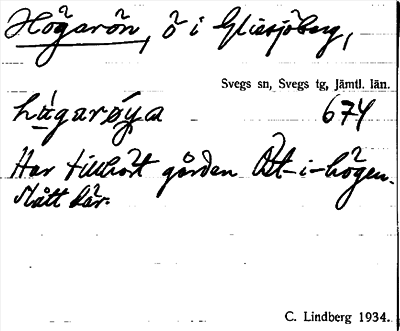 Högarön, ö i Glissjöberg,
Svegs sn, Svegs tg, Jämtl. län.
hä̀garøya 674
Har tillhört gården Öst-i-högen.
Slått där.
C. Lindberg 1934.